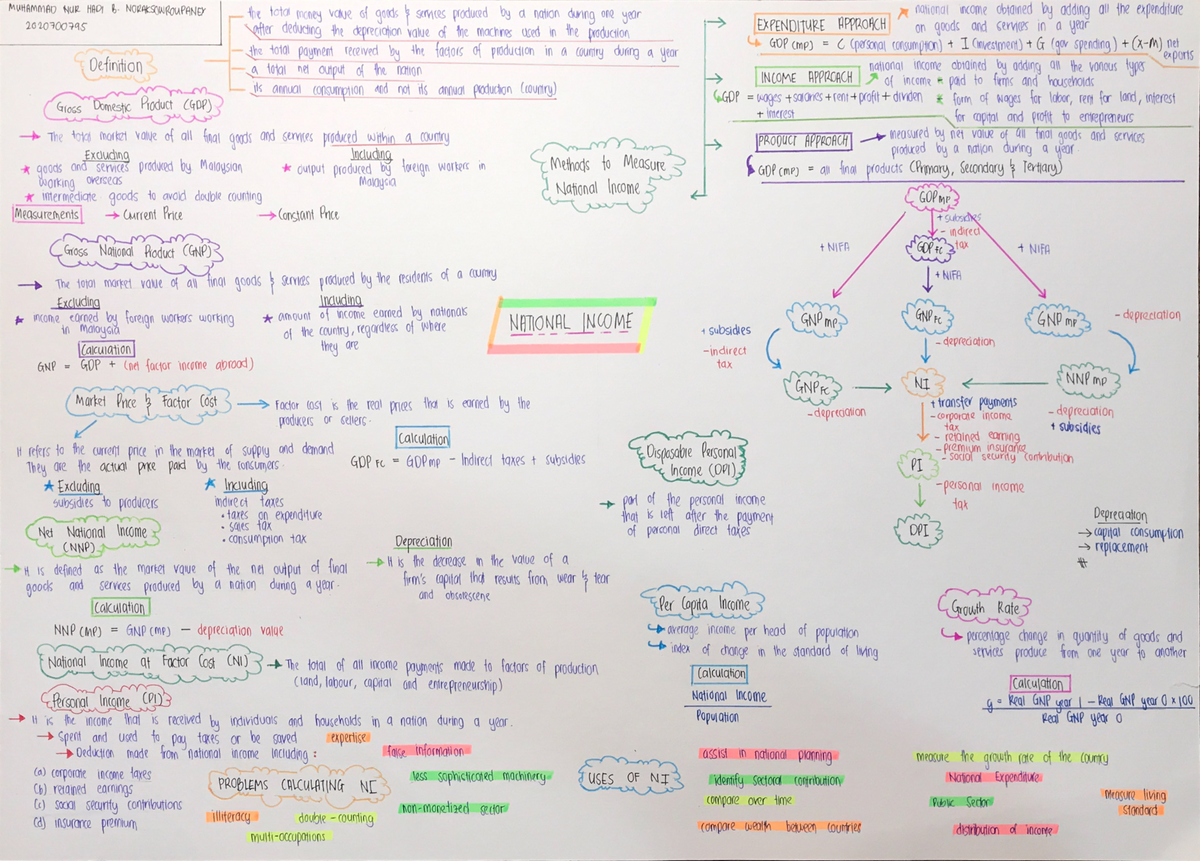 MUHAMMAD NUR HADI B.
2020700795
Definition
the total money value of goods & services produced by a nation during one year
after deducting the depreciation value of the machines used in the production
the total payment received by the factors of production in a country during a year
a total net output of the nation
its annual consumption and not its annual production (country)
Gross Domestic Product (GDP)
The total market value of all final goods and services produced within a country
Excluding
goods and services produced by Malaysian
working overseas
intermediate goods to avoid double counting
Including
output produced by foreign workers in
Malaysia
Measurements → Current Price → Constant Price
Gross National Product (GNP)
The total market value of all final goods & services produced by the residents of a country
Excluding
income earned by foreign workers working
in Malaysia
Including
amount of income earned by nationals
of the country, regardless of where
they are
Calculation
GNP = GDP + (net factor income abroad)
Market Price & Factor Cost
Factor cost is the real prices that is earned by the
producers or sellers.
It refers to the current price in the market of supply and demand
They are the actual price paid by the consumers.
Calculation
GDP FC = GDP MP - Indirect taxes + subsidies
Excluding
subsidies to producers
Including
indirect taxes
• taxes on expenditure
• sales tax
• consumption tax
Net
National Income
(NNP)
It is defined as the market value of the net output of final
goods and services produced by a nation during a year.
Calculation
NNP (MP) = GNP (MP) - depreciation value
Depreciation
It is the decrease in the value of a
firm's capital that results from wear & tear
and obsolescene
National Income at Factor Cost (NI)
The total of all income payments made to factors of production
(land, labour, capital and entrepreneurship)
Personal Income (PI)
It is the income that is received by individuals and households in a nation during a year.
Spent and used to pay taxes or be saved
Deduction made from national income including :
(a) corporate income taxes
(b) retained earnings
(c) social security contributions
(d) insurance premium
PROBLEMS CALCULATING NI
expertise
false information
less sophisticated machinery
non-monetized sector
illiteracy
double-counting
multi-occupations
NATIONAL INCOME
Methods to Measure
National Income
EXPENDITURE APPROACH
national income obtained by adding all the expenditure
on goods and services in a year
GDP (MP) = C (personal consumption) + I (investment) + G (gov spending) + (X-M) net
exports
INCOME APPROACH
national income obtained by adding all the various types
of income paid to firms and households
GDP = wages + salaries + rent + profit + dividen
+ interest
form of wages for labor, rent for land, interest
for capital and profit to entrepreneurs
PRODUCT APPROACH
measured by net value of all final goods and services
produced by a nation during a year.
GDP (MP) = all final products (Primary, Secondary & Tertiary)
GDP MP
+ subsidies
- indirect
tax
+ NIFA
GDP FC
+ NIFA
+ NIFA
GNP MP
GNP FC
GNP MP
- depreciation
+ subsidies
- indirect
tax
- depreciation
GNP FC
NI
NNP MP
- depreciation
+ transfer payments
- corporate income
tax
- retained earning
- premium insurance
- social security contribution
- depreciation
+ subsidies
PI
- personal income
tax
DPI
Depreciation
→ capital consumption
→ replacement
Disposable Personal
Income (DPI)
part of the personal income
that is left after the payment
of personal direct taxes
Per Capita Income
average income per head of population
index of change in the standard of living
Calculation
National Income
Population
Growth Rate
percentage change in quantity of goods and
services produce from one year to another
Calculation
g = Real GNP year 1 - Real GNP year 0 x 100
Real GNP year 0
USES OF NI
assist in national planning
identify sectoral contribution
compare over time
compare wealth between countries
measure the growth rate of the country
National Expenditure
Public Sector
measure living
standard
distribution of income